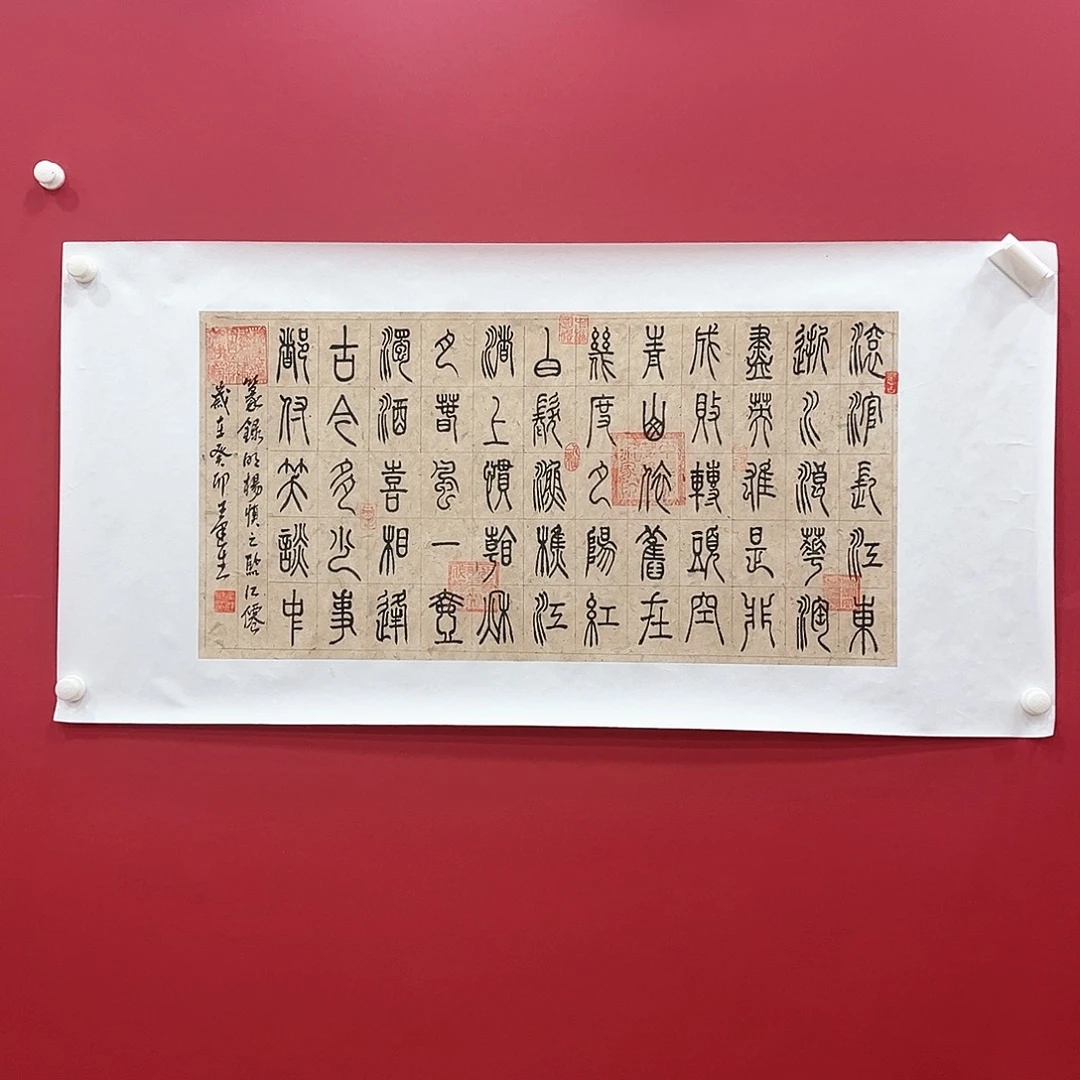 滾滾長江東
逝水浪華淘
盡英雄是非
成敗轉頭空
青山依舊在
幾度夕陽紅
白髮漁樵江
渚上慣看秋
月春風一壺
濁酒喜相逢
古今多少事
都付笑談中
篆錄明楊慎之臨江僊
歲在癸卯王建生